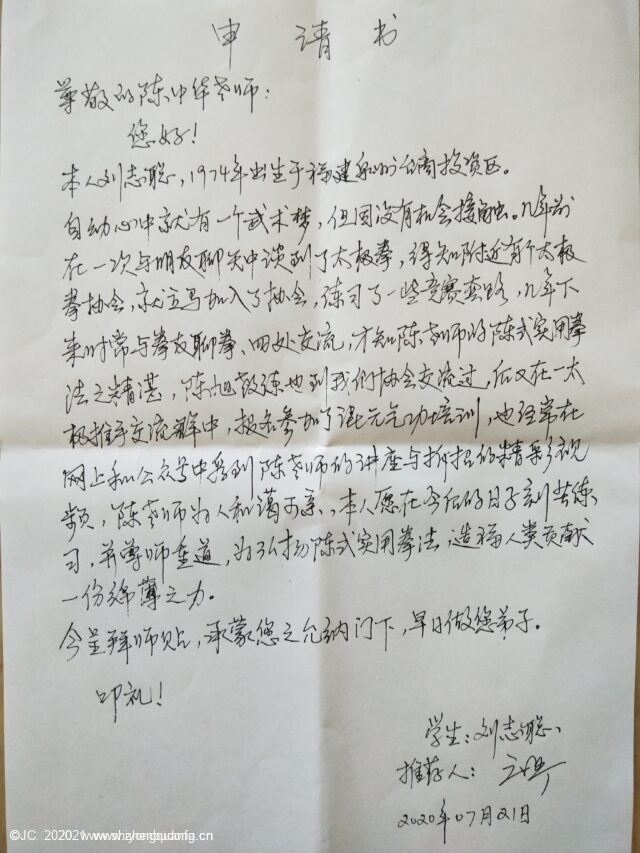 申 请 书
尊敬的陈中华老师:
您好!
本人刘志聪,1974年出生于福建泉州台商投资区。
自幼心中就有一个武术梦,但因没有机会接触。九年前
在一次与朋友聊天中谈到了太极拳,得知附近有个太极
拳协会,就立马加入了协会,练习了一些竞赛套路,九年下
来时常与拳友聊拳、四处交流,才知陈老师的陈式实用拳
法之精湛,陈旭教练也到我们协会交流过,后又在一太
极推手交流群中,报名参加了混元气功培训,也经常在
网上和公众号中看到陈老师的讲座与拆招的精彩视
频,陈老师为人和蔼可亲、本人愿在今后的日子刻苦练
习,并尊师重道,为弘扬陈式实用拳法,造福人类贡献
一份绵薄之力。
今呈拜师贴,承蒙您之允纳门下,早日做您弟子。
叩礼!
学生:刘志聪
推荐人:
2020年07月21日
©JC 202021 www.shizhongpudong.cn